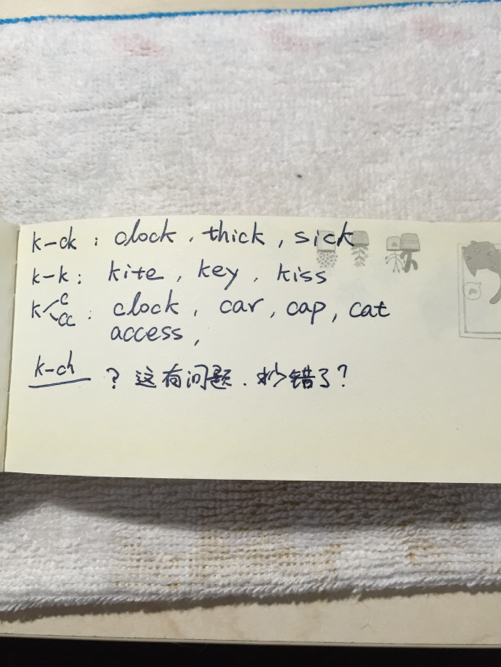 k-ck : clock , thick , sick
k-k : kite , key , kiss
k c : clock , car , cap , cat
cc access ,
k-ch ? 这有问题 . 抄错了?